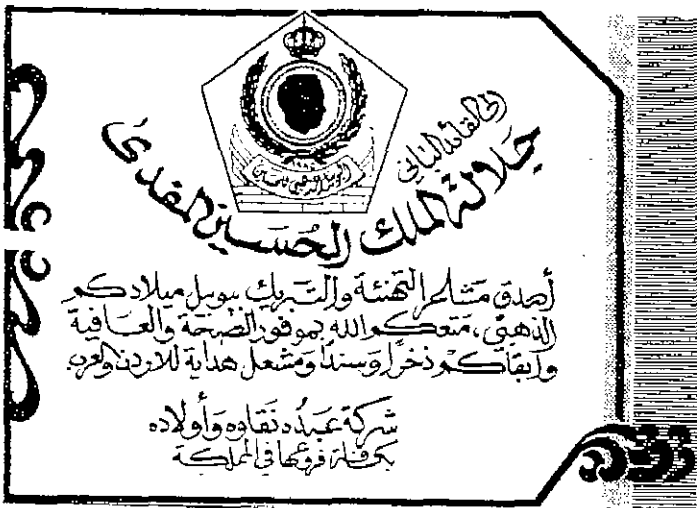 اليوبيل الذهبي للحسين
الى القائد الباني
جلالة الملك الحسين المفدى
أصدق مشاعر التهنئة والتبريك بيوبيل ميلادكم
الذهبي، متعكم الله بموفور الصحة والعافية
وأبقاكم ذخراً وسنداً ومشعل هداية للاردن والعرب
شركة عبده نقاوه وأولاده
بكافة فروعها في المملكة